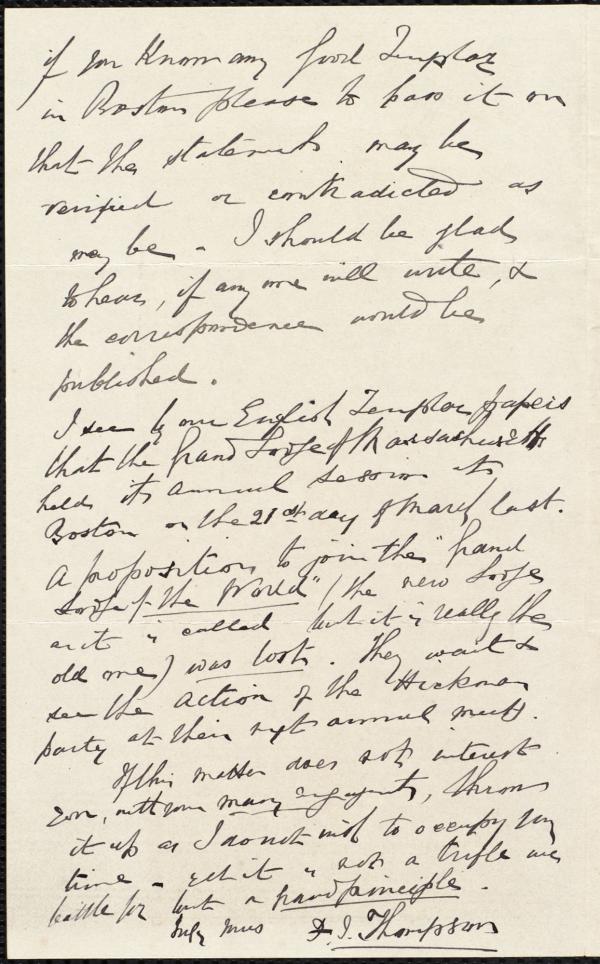 if you Know any Good Templar
in Boston please to pass it on
that the statements may be
verified or contradicted as
may be - I should be glad
to hear, if any one will write, &
the correspondence would be
published.
I see by our English Templar papers
that the Grand Lodge of Massachusetts
held its annual session at
Boston on the 21st day of March last.
A proposition to join the "Grand
Lodge of the World" (the new Lodge
as it is called but it is really the
old one) was lost. They wait to
see the action of the Hickman
party at their next annual meetg.
If this matter does not interest
you, with your many engagements, throw
it up as I do not wish to occupy your
time - yet it is not a trifle we
battle for but a grand principle.
Truly yours D. J. Thompson